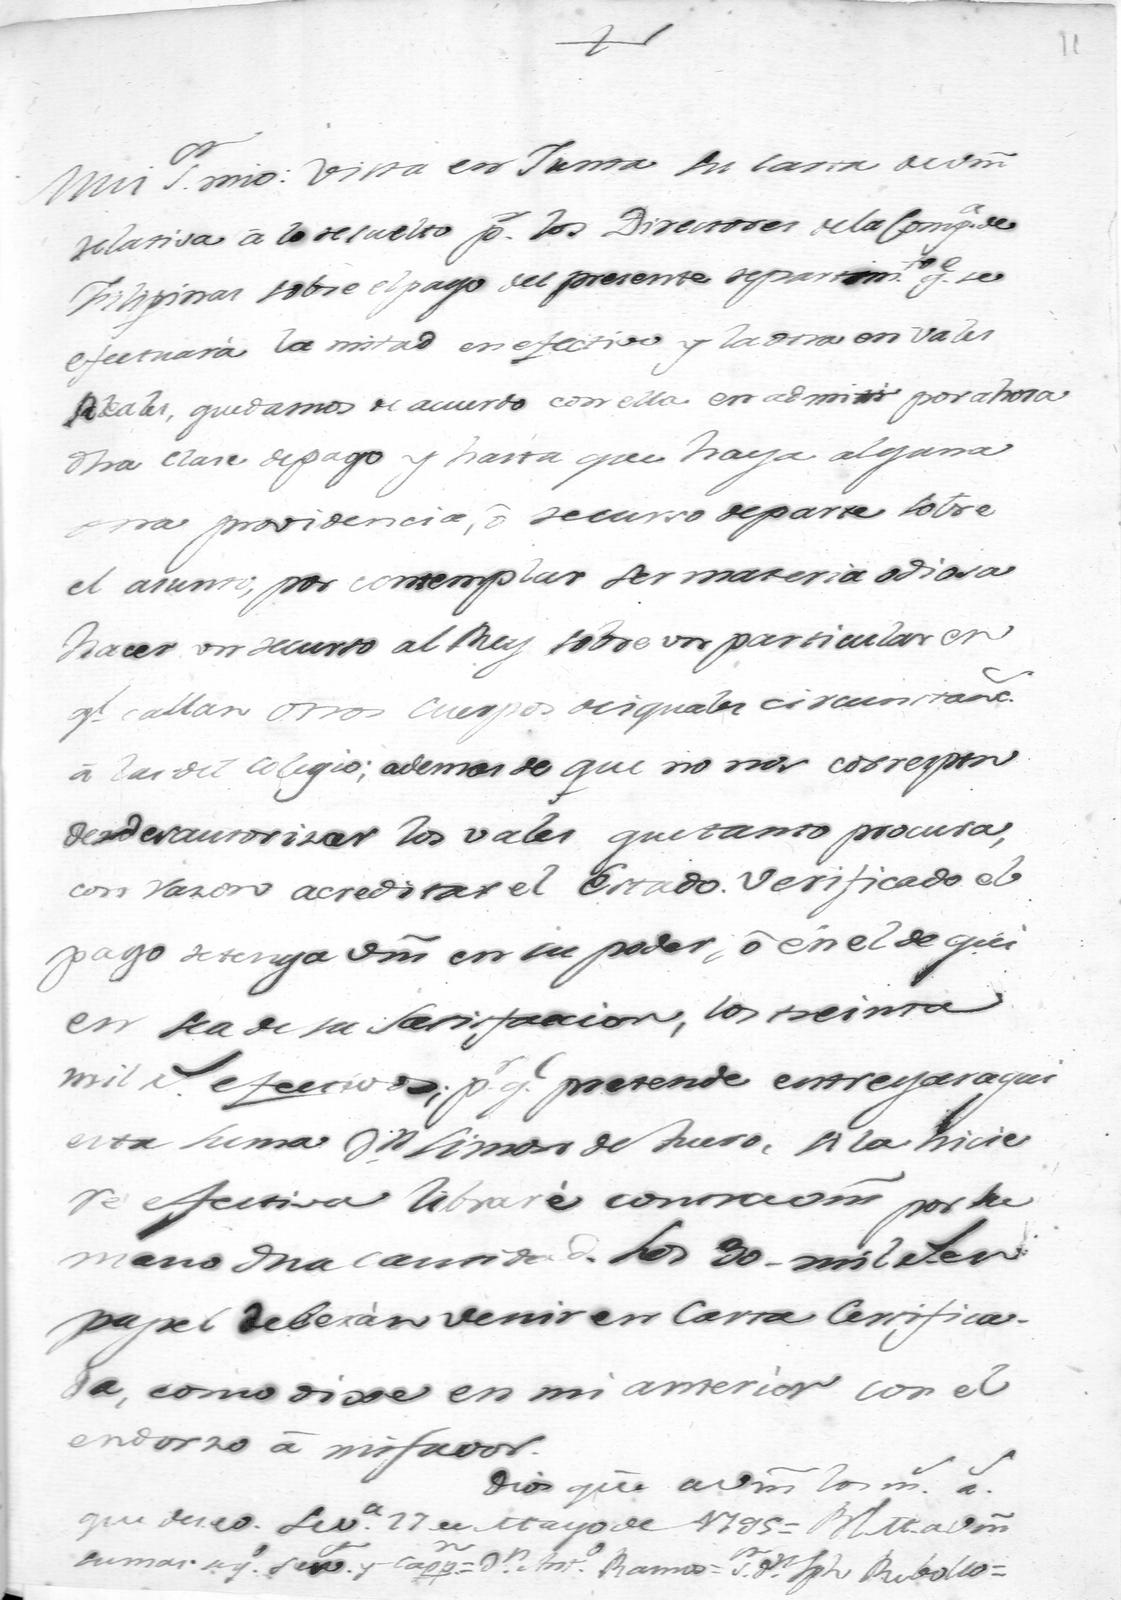 11
Mui S.or mio: Vista en Junta su carta de vm̃
relativa â lo resuelto p.r los Directores de la Comp.a de
Filipinas sobre el pago del presente repartim.to q.e se
efectuará la mitad en efectivo y la otra en Vales
Reales, quedamos de acuerdo con ella en admitir por ahora
dha clase de pago y hasta que haya alguna
otra providencia, ô recurso de parte sobre
el asunto, por contemplar ser materia odiosa
hacer un recurso al Rey sobre un particular en
q.l callan otros Cuerpos de iguales circunstanc.s
â las del Colegio; ademas de que no nos correspon
de desautorizar los vales que tanto procura,
con razon acreditar el Estado. Verificado el
pago retenga vm̃ en su poder, ô en el de qui
en sea de su Satisfaccion, los treinta
mil r.s efectivos; p.r q.e pretende entregar aqui
esta suma D.n Simon de huero, si la hicie
re efectiva libraré contra vm̃ por su
mano dha cantidad. Los 30 mil r.s en
papel deberàn venir en Carta Certifica-
da, como dixe en mi anterior con el
endorzo â mi favor.
Dios gũe a vm̃ los m.s a.s
que deseo. Sev.a 27 de Mayo de 1795= BLM. a vm̃
su mas seg.o Serv.or y Capp.n= D.n Ant.o Ramos= S.or D.n Jph Rebollo=